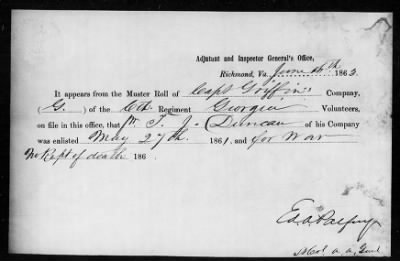 Adjutant and Inspector General's Office,
Richmond, Va. June 16th 1863.
It appears from the Muster Roll of Capt Griffin's Company,
(G.) of the 6th Regiment Georgia Volunteers,
on file in this office, that T. J. Duncan of his Company
was enlisted May 27th 1861, and for War
No Rept of death 186
Ed. A. Palfrey